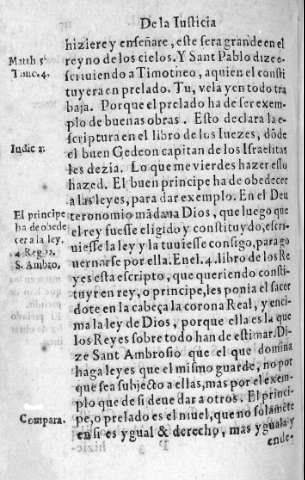 De la Iusticia
hiziere y enseñare, este sera grande en el
Math 5.
reyno de los cielos. Y Sant Pablo dize e-
Timo. 4.
scriuiendo a Timotheo, aquien el consti
tuyera en prelado. Tu, vela y en todo tra
baja. Porque el prelado ha de ser exem-
plo de buenas obras. Esto declara la e-
scriptura en el libro de los Iuezes, dōde
Iudic
el buen Gedeon capitan de los Israelitas
les dezia. Lo que me vierdes hazer esso
hazed. El buen principe ha de obedecer
a las leyes, para dar exemplo. En el Deu
El principe
teronomio mādaua Dios, que luego que
ha de obede
el rey fuesse eligido y constituydo, escri-
cer a la ley.
uiesse la ley y la tuuiesse consigo, para go
4. Reg.
uernarse por ella. En el .4. libro de los Re
S. Ambro.
yes esta escripto, que queriendo consti-
tuyr en rey, o principe, les ponia el sacer
dote en la cabeça la corona Real, y enci-
ma la ley de Dios, porque ella es la que
los Reyes sobre todo han de estimar. Di-
ze Sant Ambrosio que el que domina
haga leyes que el mismo guarde, no por
que sea subjecto a ellas, mas por el exem-
plo que de si deue dar a otros. El princi-
Compara.
pe, o prelado es el niuel, que no solamēte
en si es ygual & derecho, mas yguala y
ende-